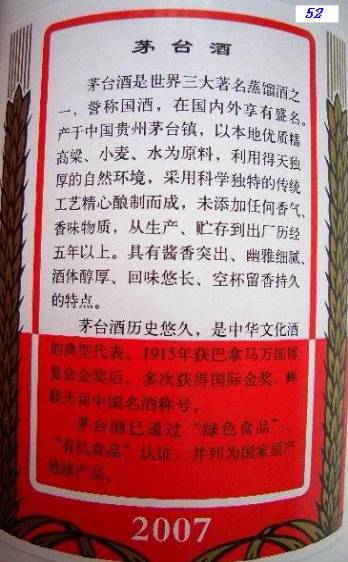 52
茅台酒
茅台酒是世界三大著名蒸馏酒之
一，誉称国酒，在国内外享有盛名。
产于中国贵州茅台镇，以本地优质糯
高粱、小麦、水为原料，利用得天独
厚的自然环境，采用科学独特的传统
工艺精心酿制而成，未添加任何香气、
香味物质，从生产、贮存到出厂历经
五年以上。具有酱香突出、幽雅细腻、
酒体醇厚、回味悠长、空杯留香持久
的特点。
茅台酒历史悠久，是中华文化酒
的典型代表。1915年获巴拿马万国博
览会金奖后，多次获得国际金奖，蝉
联历届中国名酒称号。
茅台酒已通过“绿色食品”、
“有机食品”认证，并列为国家原产
地域产品。
2007